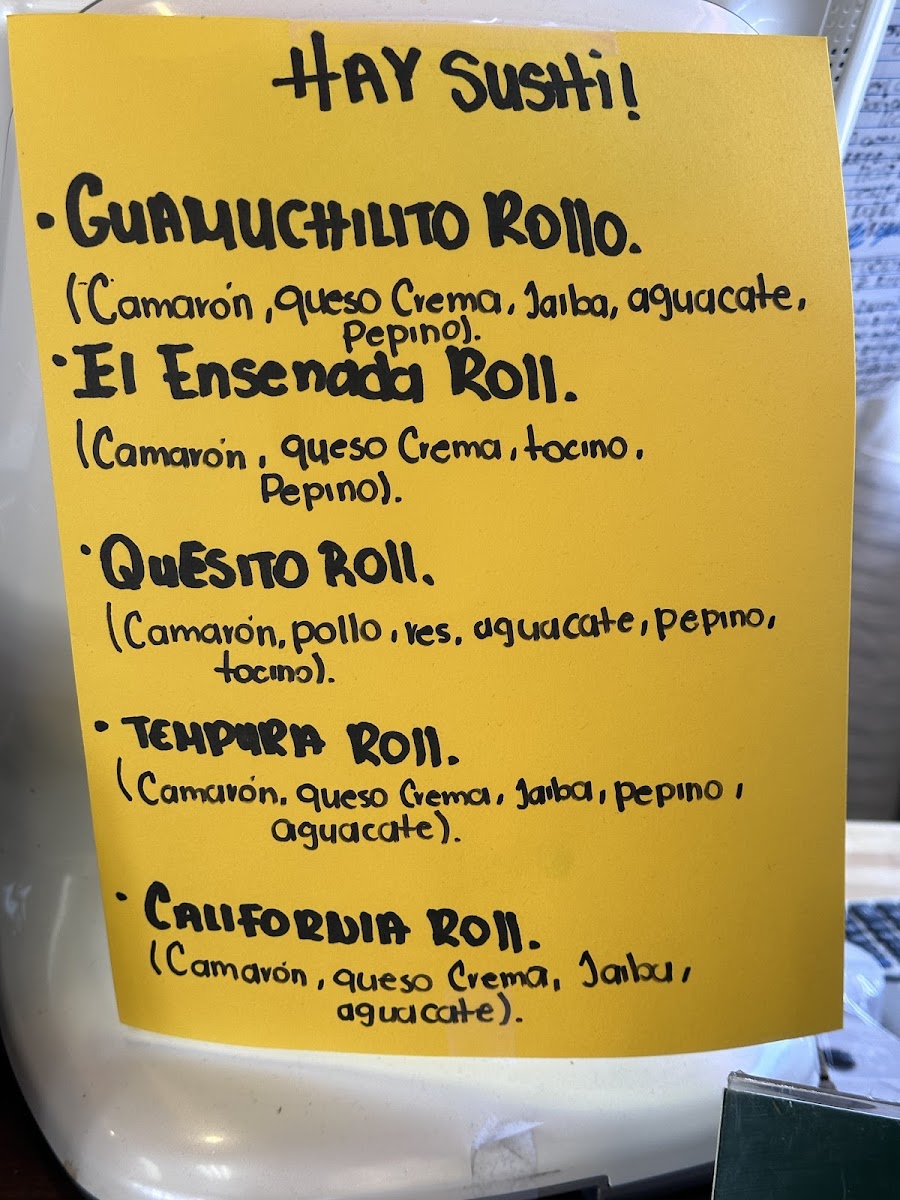 HAY SUSHi!
• GUAMUCHILITO Rollo.
(Camarón, queso Crema, Jaiba, aguacate,
Pepino).
• El Ensenada Roll.
(Camarón, queso Crema, tocino,
Pepino).
• QUESITO Roll.
(Camarón, pollo, res, aguacate, pepino,
tocino).
• TEMPURA Roll.
(Camarón, queso Crema, Jaiba, pepino,
aguacate).
• CALIFORNIA Roll.
(Camarón, queso Crema, Jaiba,
aguacate).